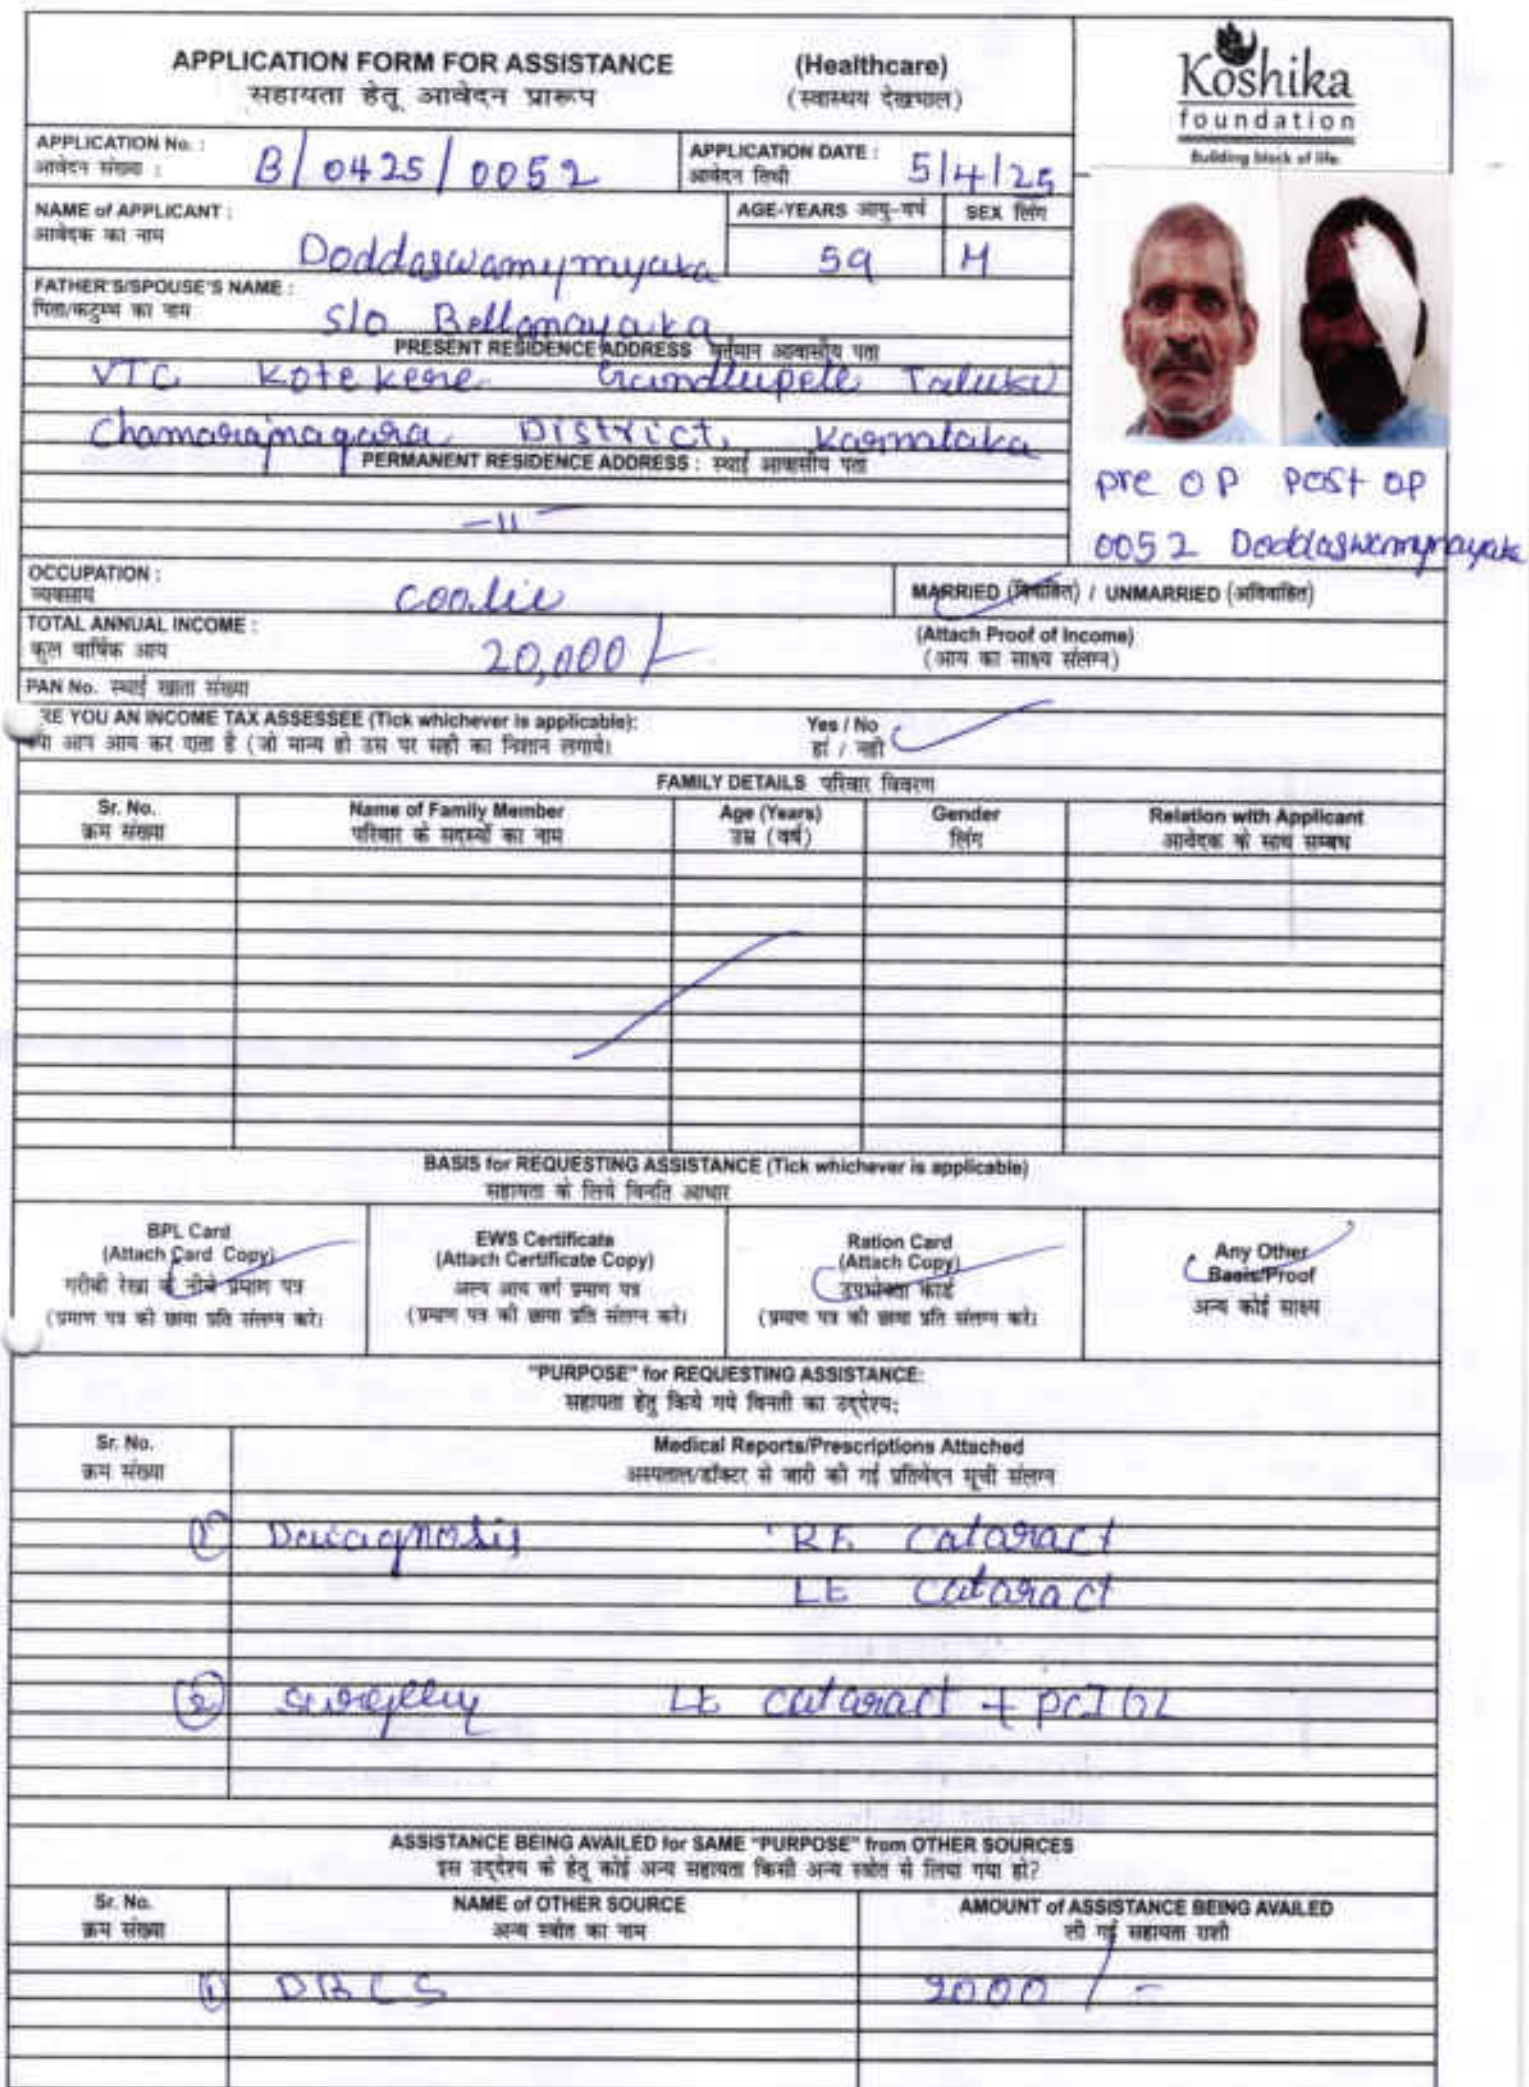 APPLICATION FORM FOR ASSISTANCE (Healthcare)
सहायता हेतू आवेदन प्रारूप (स्वास्थय देखभाल)
Koshika
foundation
Building block of life
APPLICATION No. : B/0425/0052
आवेदन संख्या :
APPLICATION DATE : 5/4/25
आवेदन तिथी
NAME of APPLICANT : Doddaswamynayaka
आवेदक का नाम
AGE-YEARS आयु-वर्ष 59
SEX लिंग M
FATHER'S/SPOUSE'S NAME : S/o Bellanayaka
पिता/कटुम्भ का नाम
PRESENT RESIDENCE ADDRESS वर्तमान आवासीय पता
VTC Kotekere Gundlupete Taluku
Chamarajnagara District, Karnataka
PERMANENT RESIDENCE ADDRESS : स्थाई आवासीय पता
-11-
pre op post op
0052 Doddaswamynayaka
OCCUPATION : coolie
व्यवसाय
MARRIED (विवाहित) / UNMARRIED (अविवाहित)
TOTAL ANNUAL INCOME : 20,000/-
कुल वार्षिक आय
(Attach Proof of Income)
(आय का साक्ष्य संलग्न)
PAN No. स्थाई खाता संख्या
RE YOU AN INCOME TAX ASSESSEE (Tick whichever is applicable): Yes / No
आप आय कर दाता है (जो मान्य हो उस पर सही का निशान लगाये। हां / नही
FAMILY DETAILS परिवार विवरण
Sr. No. Name of Family Member Age (Years) Gender Relation with Applicant
क्रम संख्या परिवार के सदस्यों का नाम उम्र (वर्ष) लिंग आवेदक के साथ सम्बध
BASIS for REQUESTING ASSISTANCE (Tick whichever is applicable)
सहायता के लिये विनति आधार
BPL Card
(Attach Card Copy)
गरीबी रेखा के नीचे प्रमाण पत्र
(प्रमाण पत्र की छाया प्रति संलग्न करे।
EWS Certificate
(Attach Certificate Copy)
अल्प आय वर्ग प्रमाण पत्र
(प्रमाण पत्र की छाया प्रति संलग्न करे।
Ration Card
(Attach Copy)
उपभोक्ता कार्ड
(प्रमाण पत्र की छाया प्रति संलग्न करे।
Any Other
Basis/Proof
अन्य कोई साक्ष्य
"PURPOSE" for REQUESTING ASSISTANCE:
सहायता हेतु किये गये विनती का उद्देश्य:
Sr. No. Medical Reports/Prescriptions Attached
क्रम संख्या अस्पताल/डॉक्टर से जारी की गई प्रतिवेदन सूची संलग्न
① Daiagnosis RE cataract
LE cataract
② surgery LE cataract + PCIOL
ASSISTANCE BEING AVAILED for SAME "PURPOSE" from OTHER SOURCES
इस उद्देश्य के हेतू कोई अन्य सहायता किसी अन्य स्त्रोत से लिया गया हो?
Sr. No. NAME of OTHER SOURCE AMOUNT of ASSISTANCE BEING AVAILED
क्रम संख्या अन्य स्त्रोत का नाम ली गई सहायता राशी
① DBCS 2000/-